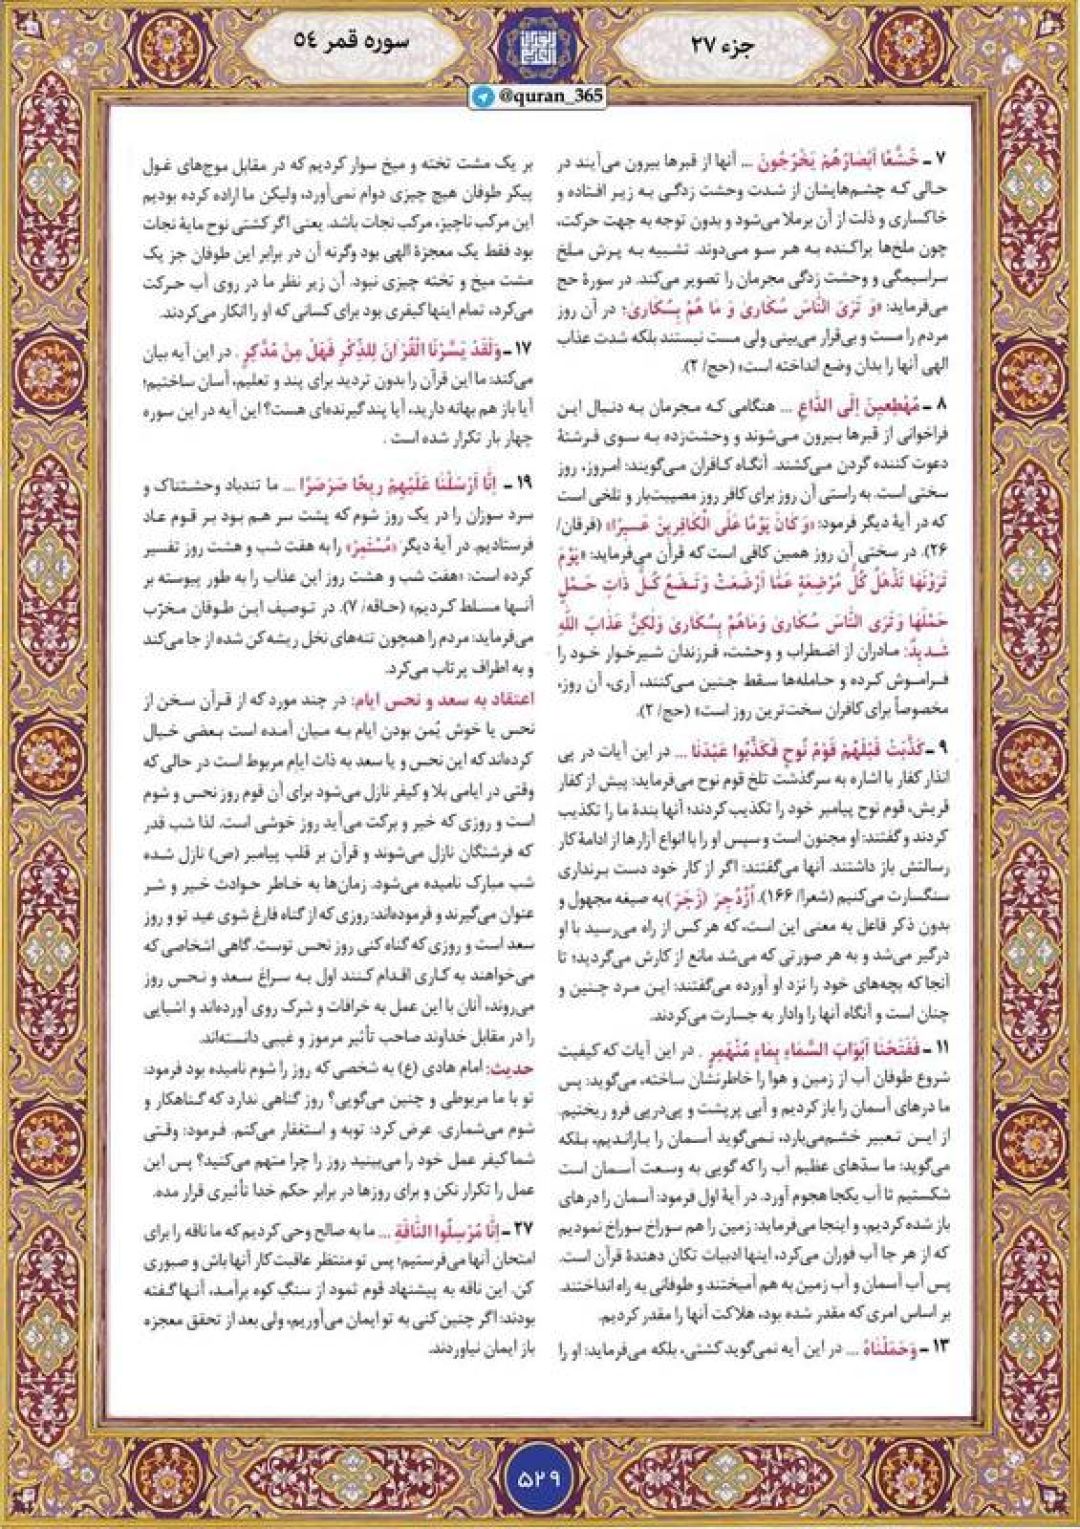 جزء ۲۷
سوره قمر ٥٤
@quran_365
۷ ـ خُشَّعًا أَبْصَارُهُمْ يَخْرُجُونَ ... آنها از قبرها بیرون می‌آیند در
حالی که چشم‌هایشان از شدت وحشت زدگی به زیر افتاده و
خاکساری و ذلت از آن برملا می‌شود و بدون توجه به جهت حرکت،
چون ملخ‌ها پراکنده به هر سو می‌دوند. تشبیه به پرش ملخ
سراسیمگی و وحشت زدگی مجرمان را تصویر می‌کند. در سورۀ حج
می‌فرماید: «وَ تَرَى النَّاسَ سُكَارىٰ وَ مَا هُمْ بِسُكَارىٰ؛ در آن روز
مردم را مست و بی‌قرار می‌بینی ولی مست نیستند بلکه شدت عذاب
الهی آنها را بدان وضع انداخته است» (حج/ ۲).
۸ ـ مُهْطِعِينَ إِلَى الدَّاعِ ... هنگامی که مجرمان به دنبال این
فراخوانی از قبرها بیرون می‌شوند و وحشت‌زده به سوی فرشتۀ
دعوت کننده گردن می‌کشند. آنگاه کافران می‌گویند: امروز، روز
سختی است. به راستی آن روز برای کافر روز مصیبت‌بار و تلخی است
که در آیۀ دیگر فرمود: «وَ كَانَ يَوْمًا عَلَى الْكَافِرِينَ عَسِيرًا» (فرقان/
۲۶). در سختی آن روز همین کافی است که قرآن می‌فرماید: «يَوْمَ
تَرَوْنَهَا تَذْهَلُ كُلُّ مُرْضِعَةٍ عَمَّا أَرْضَعَتْ وَتَضَعُ كُلُّ ذَاتِ حَمْلٍ
حَمْلَهَا وَ تَرَى النَّاسَ سُكَارىٰ وَمَاهُمْ بِسُكَارىٰ وَلٰكِنَّ عَذَابَ اللَّهِ
شَدِيدٌ: مادران از اضطراب و وحشت، فرزندان شیرخوار خود را
فراموش کرده و حامله‌ها سقط جنین می‌کنند، آری، آن روز،
مخصوصاً برای کافران سخت‌ترین روز است» (حج/ ۲).
۹ ـ كَذَّبَتْ قَبْلَهُمْ قَوْمُ نُوحٍ فَكَذَّبُوا عَبْدَنَا ... در این آیات در پی
انذار کفار با اشاره به سرگذشت تلخ قوم نوح می‌فرماید: پیش از کفار
قریش، قوم نوح پیامبر خود را تکذیب کردند؛ آنها بندۀ ما را تکذیب
کردند و گفتند: او مجنون است و سپس او را با انواع آزارها از ادامۀ کار
رسالتش باز داشتند. آنها می‌گفتند: اگر از کار خود دست برنداری
سنگسارت می‌کنیم (شعرا/ ۱۶۶). اُزْدُجِرَ (زَجَرَ) به صیغه مجهول و
بدون ذکر فاعل به معنی این است، که هر کس از راه می‌رسید با او
درگیر می‌شد و به هر صورتی که می‌شد مانع از کارش می‌گردید؛ تا
آنجا که بچه‌های خود را نزد او آورده می‌گفتند: این مرد چنین و
چنان است و آنگاه آنها را وادار به جسارت می‌کردند.
۱۱ ـ فَفَتَحْنَا أَبْوَابَ السَّمَاءِ بِمَاءٍ مُنْهَمِرٍ . در این آیات که کیفیت
شروع طوفان آب از زمین و هوا را خاطرنشان ساخته، می‌گوید: پس
ما درهای آسمان را باز کردیم و آبی پرپشت و پی‌درپی فرو ریختیم.
از این تعبیر خشم‌می‌بارد، نمی‌گوید آسمان را باراندیم، بلکه
می‌گوید: ما سدّهای عظیم آب را که گویی به وسعت آسمان است
شکستیم تا آب یکجا هجوم آورد. در آیۀ اول فرمود: آسمان را درهای
باز شده کردیم، و اینجا می‌فرماید: زمین را هم سوراخ سوراخ نمودیم
که از هر جا آب فوران می‌کرد، اینها ادبیات تکان دهندۀ قرآن است.
پس آب آسمان و آب زمین به هم آمیختند و طوفانی به راه انداختند.
بر اساس امری که مقدر شده بود، هلاکت آنها را مقدر کردیم.
۱۳ ـ وَحَمَلْنَاهُ ... در این آیه نمی‌گوید کشتی، بلکه می‌فرماید: او را
بر یک مشت تخته و میخ سوار کردیم که در مقابل موج‌های غول
پیکر طوفان هیچ چیزی دوام نمی‌آورد، ولیکن ما اراده کرده بودیم
این مرکب ناچیز، مرکب نجات باشد. یعنی اگر کشتی نوح مایۀ نجات
بود فقط یک معجزۀ الهی بود وگرنه آن در برابر این طوفان جز یک
مشت میخ و تخته چیزی نبود. آن زیر نظر ما در روی آب حرکت
می‌کرد، تمام اینها کیفری بود برای کسانی که او را انکار می‌کردند.
۱۷ ـ وَلَقَدْ يَسَّرْنَا الْقُرْآنَ لِلذِّكْرِ فَهَلْ مِنْ مُدَّكِرٍ . در این آیه بیان
می‌کند: ما این قرآن را بدون تردید برای پند و تعلیم، آسان ساختیم؛
آیا باز هم بهانه دارید، آیا پند گیرنده‌ای هست؟ این آیه در این سوره
چهار بار تکرار شده است .
۱۹ ـ إِنَّا أَرْسَلْنَا عَلَيْهِمْ رِيحًا صَرْصَرًا ... ما تندباد وحشتناک و
سرد سوزان را در یک روز شوم که پشت سر هم بود بر قوم عاد
فرستادیم. در آیۀ دیگر «مُسْتَمِرّ» را به هفت شب و هشت روز تفسیر
کرده است: «هفت شب و هشت روز این عذاب را به طور پیوسته بر
آنها مسلط کردیم» (حاقه/ ۷). در توصیف این طوفان مخرّب
می‌فرماید: مردم را همچون تنه‌های نخل ریشه‌کن شده از جا می‌کند
و به اطراف پرتاب می‌کرد.
اعتقاد به سعد و نحس ایام: در چند مورد که از قرآن سخن از
نحس یا خوش یُمن بودن ایام به میان آمده است بعضی خیال
کرده‌اند که این نحس و یا سعد به ذات ایام مربوط است در حالی که
وقتی در ایامی بلا و کیفر نازل می‌شود برای آن قوم روز نحس و شوم
است و روزی که خیر و برکت می‌آید روز خوشی است. لذا شب قدر
که فرشتگان نازل می‌شوند و قرآن بر قلب پیامبر (ص) نازل شده
شب مبارک نامیده می‌شود. زمان‌ها به خاطر حوادث خیر و شر
عنوان می‌گیرند و فرموده‌اند: روزی که از گناه فارغ شوی عید تو و روز
سعد است و روزی که گناه کنی روز نحس توست. گاهی اشخاصی که
می‌خواهند به کاری اقدام کنند اول به سراغ سعد و نحس روز
می‌روند، آنان با این عمل به خرافات و شرک روی آورده‌اند و اشیایی
را در مقابل خداوند صاحب تأثیر مرموز و غیبی دانسته‌اند.
حدیث: امام هادی (ع) به شخصی که روز را شوم نامیده بود فرمود:
تو با ما مربوطی و چنین می‌گویی؟ روز گناهی ندارد که گناهکار و
شوم می‌شماری. عرض کرد: توبه و استغفار می‌کنم. فرمود: وقتی
شما کیفر عمل خود را می‌بینید روز را چرا متهم می‌کنید؟ پس این
عمل را تکرار نکن و برای روزها در برابر حکم خدا تأثیری قرار مده.
۲۷ ـ إِنَّا مُرْسِلُوا النَّاقَةِ ... ما به صالح وحی کردیم که ما ناقه را برای
امتحان آنها می‌فرستیم؛ پس تو منتظر عاقبت کار آنها باش و صبوری
کن. این ناقه به پیشنهاد قوم ثمود از سنگِ کوه برآمد، آنها گفته
بودند: اگر چنین کنی به تو ایمان می‌آوریم، ولی بعد از تحقق معجزه
باز ایمان نیاوردند.
۵۲۹